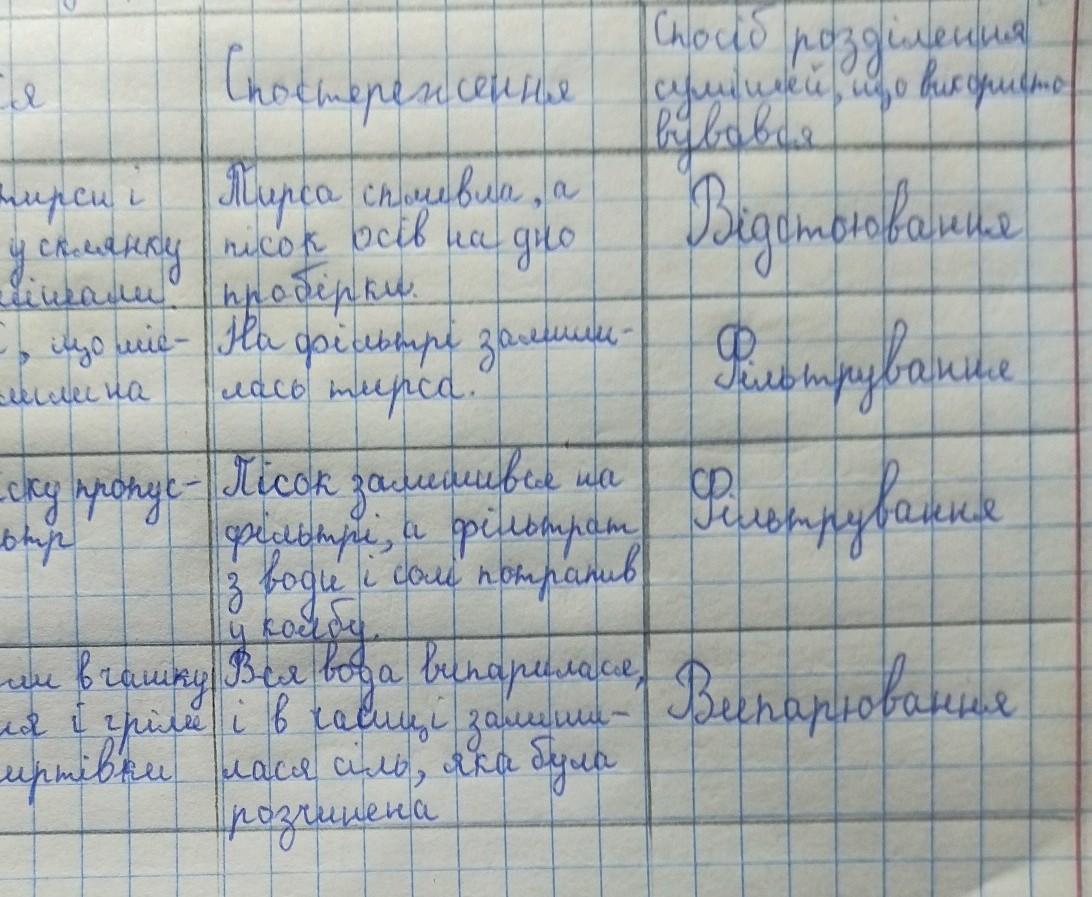 Спостереження
Спосіб розділення
сумішей, що використо
вувався
тирси і
у склянку
Тирса спливла, а
пісок осів на дно
пробірки.
Відстоювання
, що міс-
лили на
На фільтрі залиши-
лась тирса.
Фільтрування
ску пропус-
ьтр
Пісок залишився на
фільтрі, а фільтрат
з води і солі потрапив
у колбу.
Фільтрування
ли в чашку
ня і гріли
иртівки
Вся вода випарилася,
і в чашці залиши-
лася сіль, яка була
розчинена
Випарювання